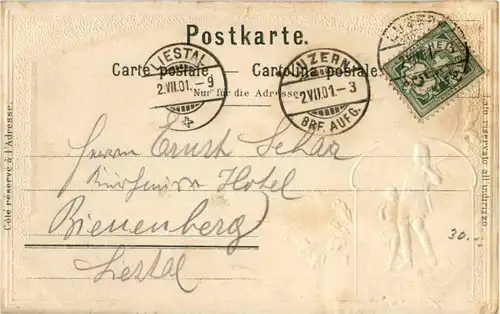 Postkarte.
Carte postale. Cartolina postale.
Nur für die Adresse.
LIESTAL
2.VII.01.–9
LUZERN
2.VII.01.–3
BRF. AUFG.
Herrn Ernst Schär
Hotel
Bienenberg
Liestal
30.-
Côté réservé à l'Adresse.
Lato riservato all'indirizzo